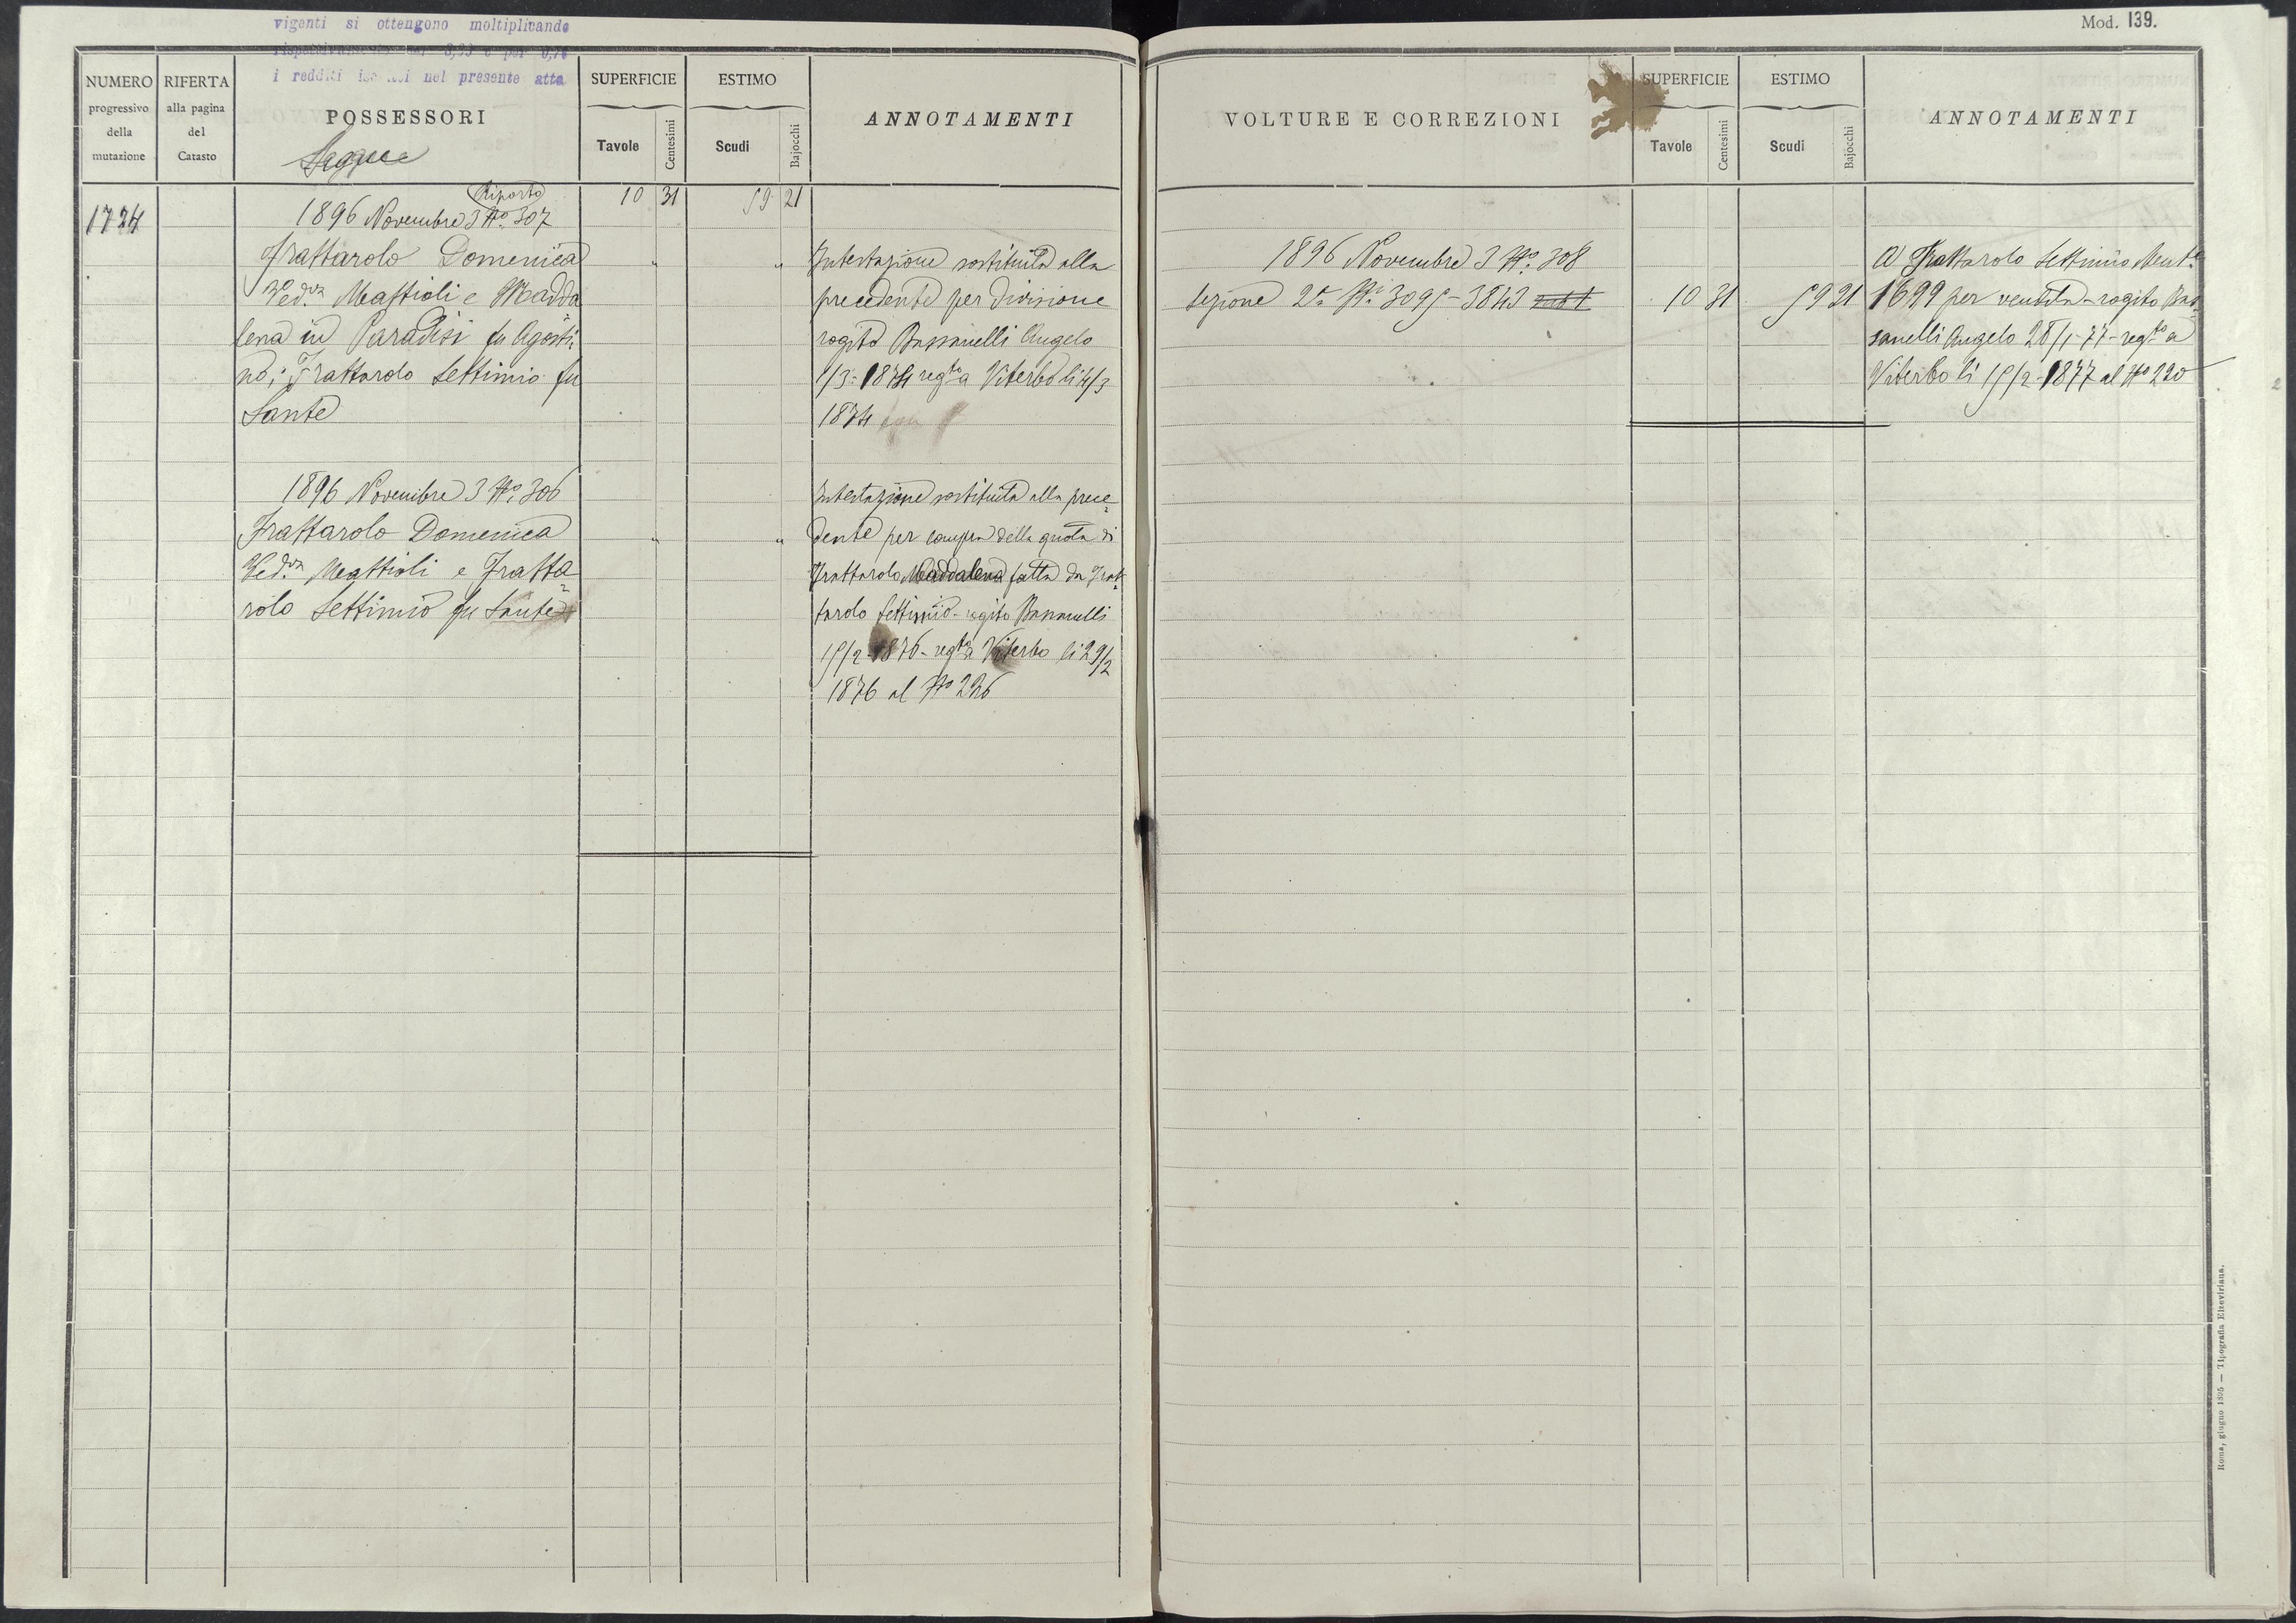 vigenti si ottengono moltiplicando
i redditi nel presente atto
NUMERO
progressivo
della
mutazione
RIFERTA
alla pagina
del
Catasto
POSSESSORI
Segue
SUPERFICIE
Tavole
Centesimi
ESTIMO
Scudi
Bajocchi
ANNOTAMENTI
Riporto 10 31 59 21
1724
1896 Novembre 3 No. 307
Frattarolo Domenica
Ved.va Mattioli e Madda
lena in Paradisi fu Agosti
no; Frattarolo Settimio fu
Sante
Intestazione sostituita alla
precedente per divisione
rogito Bassanelli Angelo
1/3 1874 reg.to a Viterbo li 4/3
1874
1896 Novembre 3 No. 306
Frattarolo Domenica
Ved.va Mattioli e Fratta
rolo Settimio fu Sante
Intestazione sostituita alla prece
dente per compra della quota di
Frattarolo Maddalena fatta da Frat
tarolo Settimio - rogito Bassanelli
15/2 1876 - reg.to a Viterbo li 29/2
1876 al No 236
Mod. 139.
VOLTURE E CORREZIONI
SUPERFICIE
Tavole
Centesimi
ESTIMO
Scudi
Bajocchi
ANNOTAMENTI
1896 Novembre 3 No. 308
Sezione 2a Ni. 3095 - 3843 sub 1 10 31 59 21
A Frattarolo Settimio
1699 per vendita - rogito Bas
sanelli Angelo 28/1 - 77 - reg.to a
Viterbo li 15/2 - 1877 al No 220
Roma, giugno 1895 — Tipografia Elzeviriana.